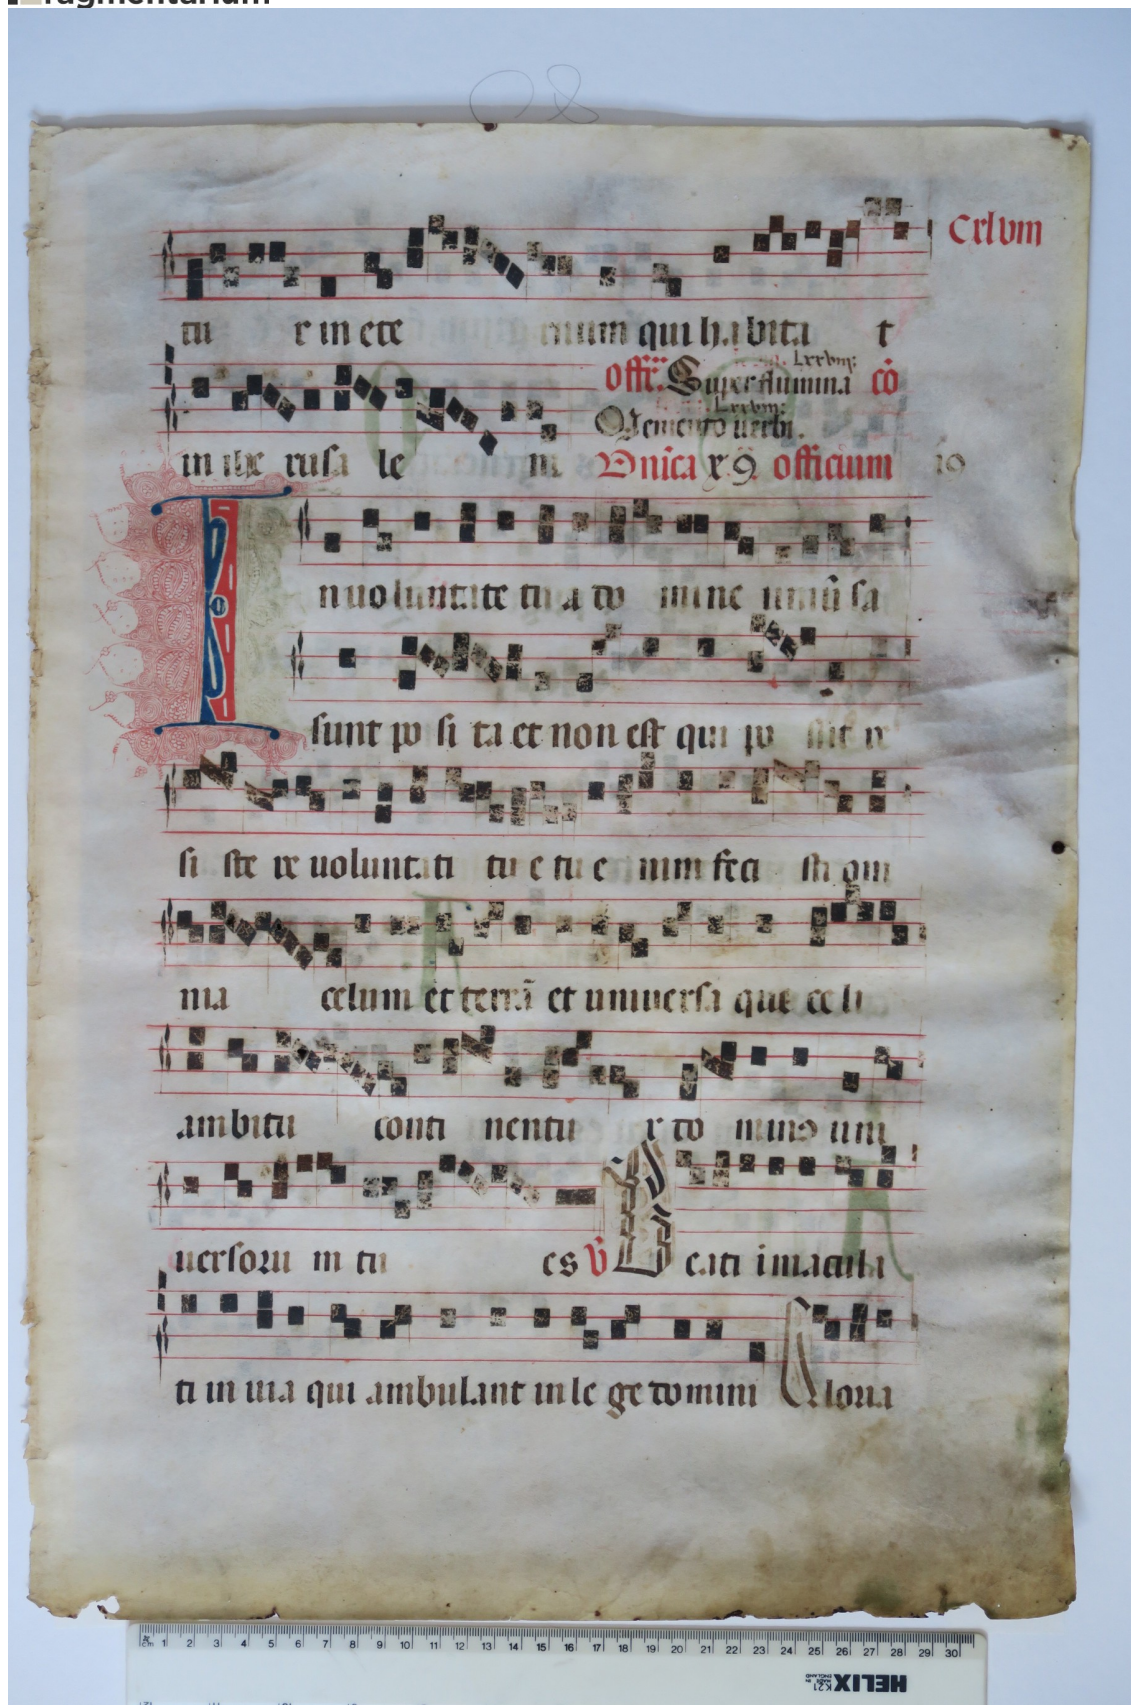 ragmentarium
Cxlvııı
tu r in ete rnum qui habita t
offr̄. Super flumina cō Lxxviij:
Memento uerbi. Lxxviij:
in ihe rusa le m Dn̄ica x9 officium 19
In uoluntate tua do mine uniũsa
sunt po si ta et non est qui po ssit re
si ste re uolunta ti tu e tu e nim feci sti om
nia celum et terrã et uniuersa que ce li
ambitu conti nentu r do minus uni
uersoru m tu es v̄ Beati i macula
ti in uia qui ambulant in le ge domini Gloria
1 2 3 4 5 6 7 8 9 10 11 12 13 14 15 16 17 18 19 20 21 22 23 24 25 26 27 28 29 30
HELIX
MADE IN ENGLAND
K21